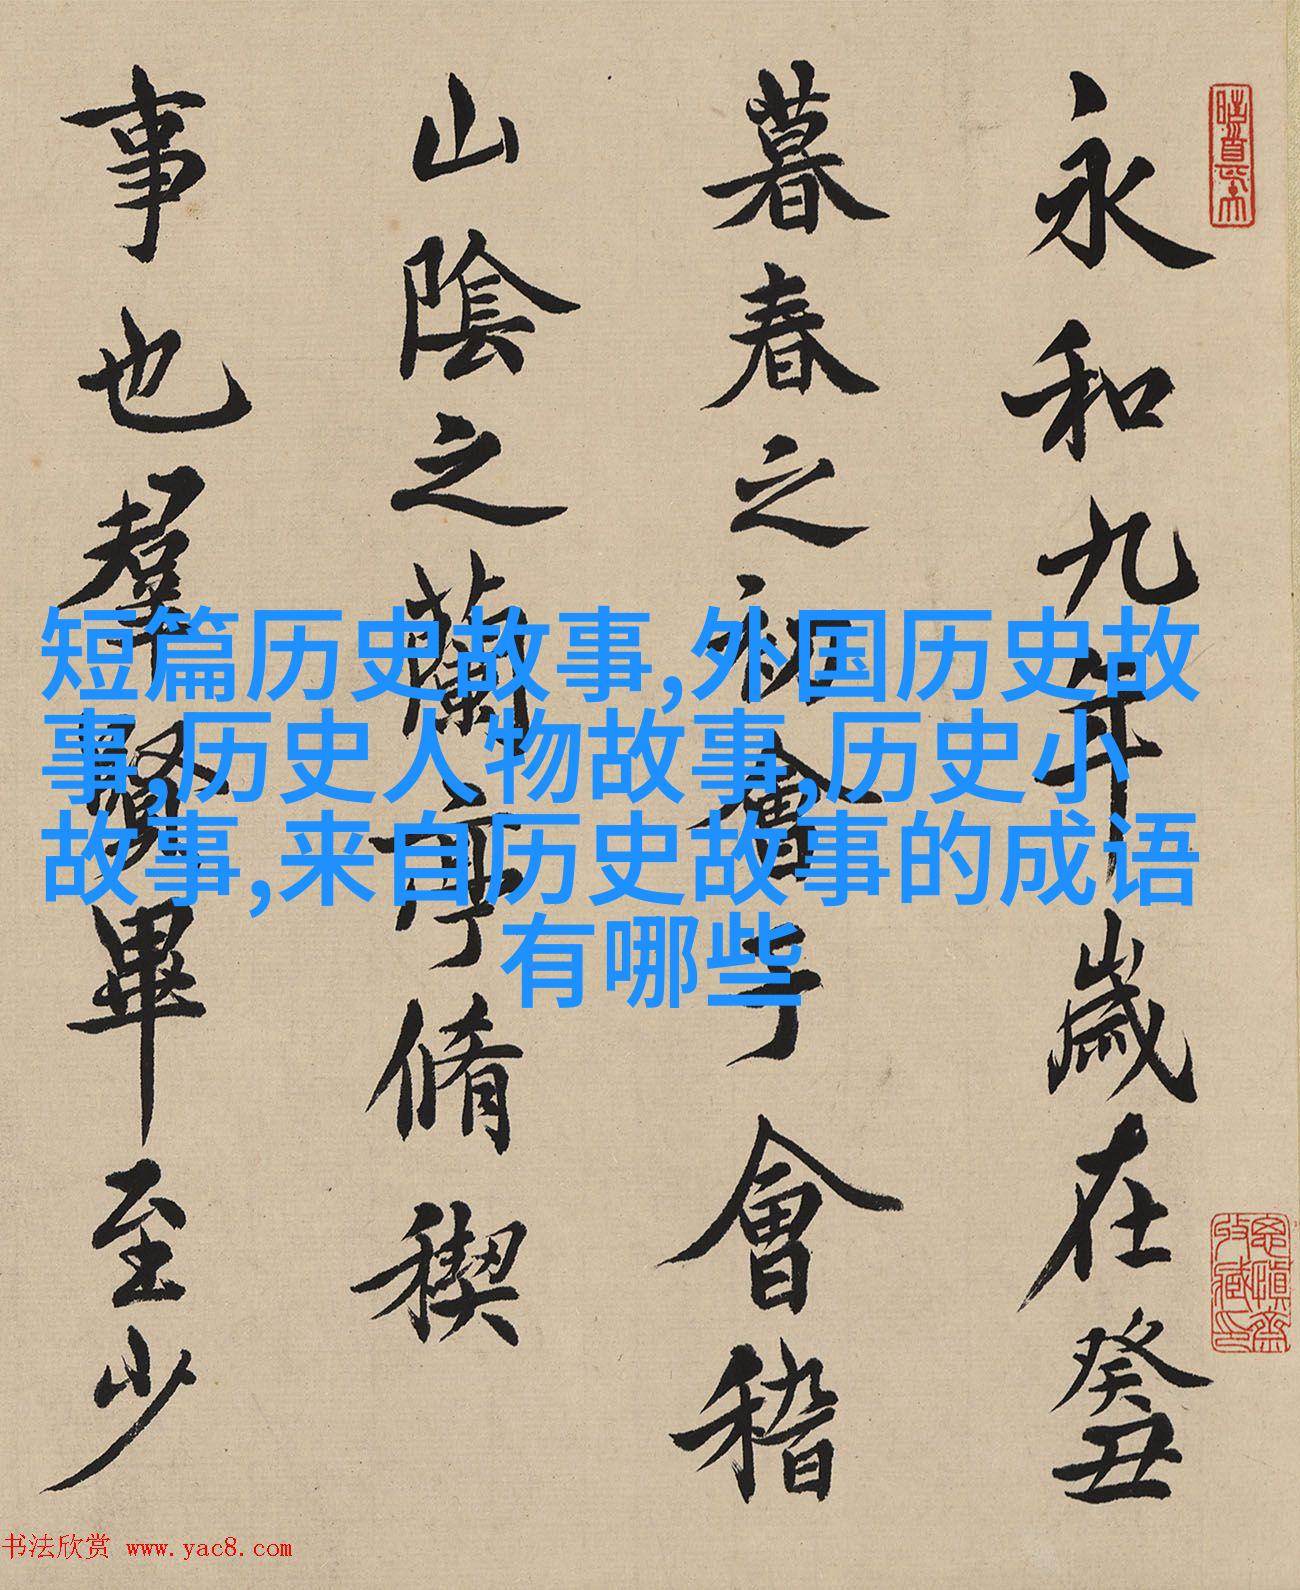 永和九年歲在癸丑
暮春之初會于會稽
山陰之蘭亭脩稧
事也羣賢畢至少
短篇历史故事,外国历史故
事,历史人物故事,历史小
故事,来自历史故事的成语
有哪些
书法欣赏 www.yac8.com